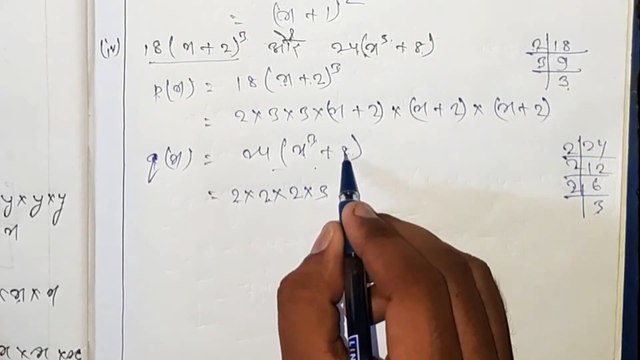 = (x + 1)²
(iv) 18(x + 2)³ और 24(x³ + 8)
p(x) = 18(x + 2)³
= 2 × 3 × 3 × (x + 2) × (x + 2) × (x + 2)
q(x) = 24(x³ + 8)
= 2 × 2 × 2 × 3
2 18
3 9
3
2 24
2 12
2 6
3
y × y × y
x